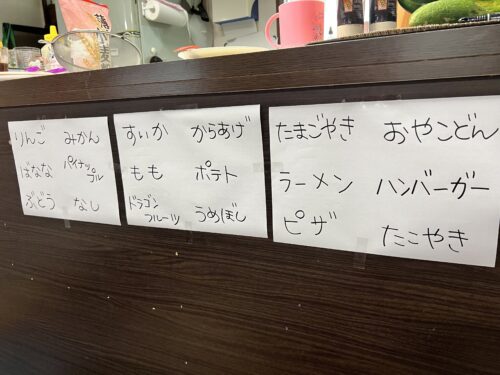 りんご みかん
ばなな パイナップル
ぶどう なし
すいか からあげ
もも ポテト
ドラゴンフルーツ うめぼし
たまごやき おやこどん
ラーメン ハンバーガー
ピザ たこやき